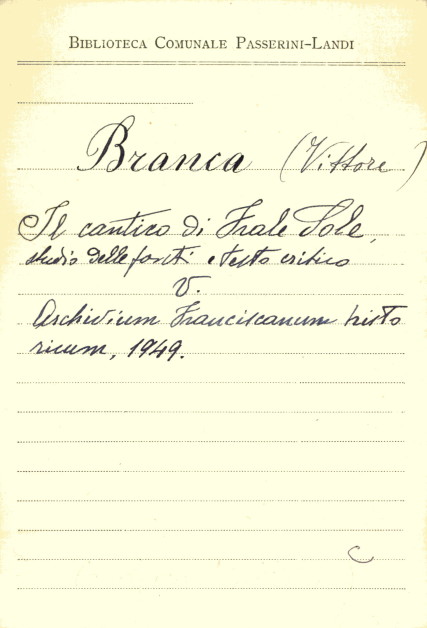 BIBLIOTECA COMUNALE PASSERINI-LANDI
Branca (Vittore)
Il cantico di Frate Sole,
studio delle fonti e testo critico
V.
Archivium Franciscanum histo
ricum, 1949.
C